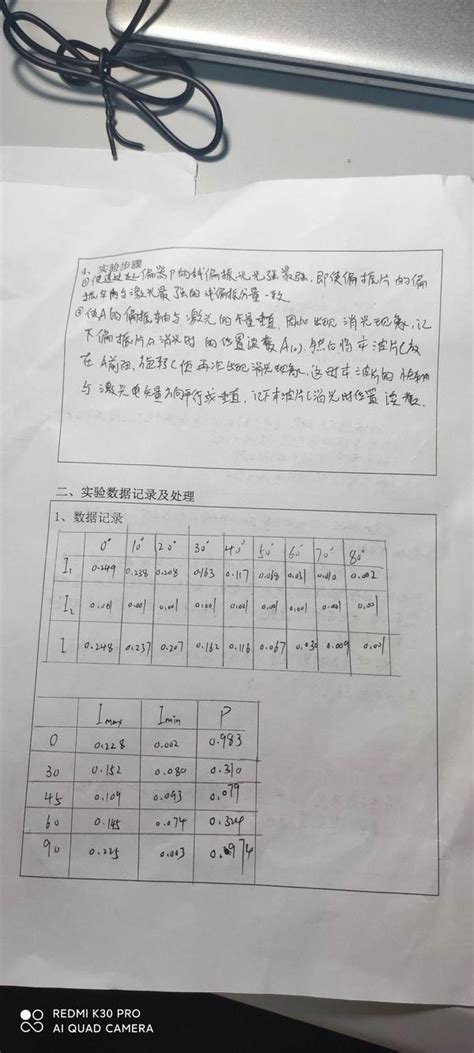 4、实验步骤
①使通过起偏器P的线偏振光光强最强,即使偏振片的偏
振方向与激光最强的线偏振分量一致
②使A的偏振轴与激光的矢量垂直,因此出现消光现象,记
下偏振片A消光时的位置读数A(0),然后将 波片C放
在A前面,旋转C使再次出现消光现象,这时 波片的
与激光电矢量方向平行或垂直,记下 波片C消光时位置读数.
二、实验数据记录及处理
1、数据记录
0° 10° 20° 30° 40° 50° 60° 70° 80°
I₁ 0.249 0.238 0.208 0.163 0.117 0.068 0.031 0.010 0.002
I₂ 0.001 0.001 0.001 0.001 0.001 0.001 0.001 0.001 0.001
I 0.248 0.237 0.207 0.162 0.116 0.067 0.030 0.009 0.001
Imax Imin P
0 0.228 0.002 0.983
30 0.152 0.080 0.310
45 0.109 0.093 0.079
60 0.145 0.074 0.324
90 0.225 0.003 0.974
REDMI K30 PRO
AI QUAD CAMERA